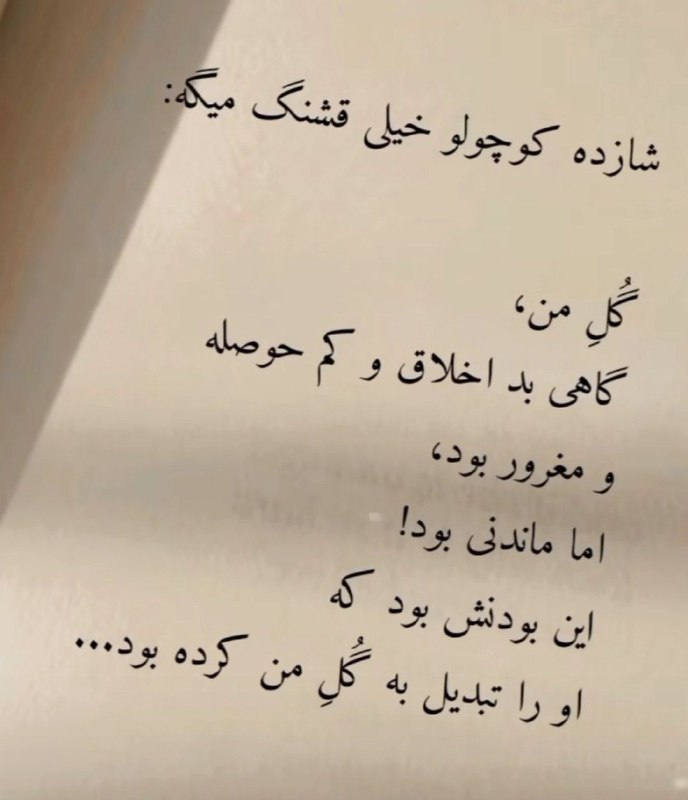 شازده کوچولو خیلی قشنگ میگه:
گُلِ من،
گاهی بد اخلاق و کم حوصله
و مغرور بود،
اما ماندنی بود!
این بودنش بود که
او را تبدیل به گُلِ من کرده بود...